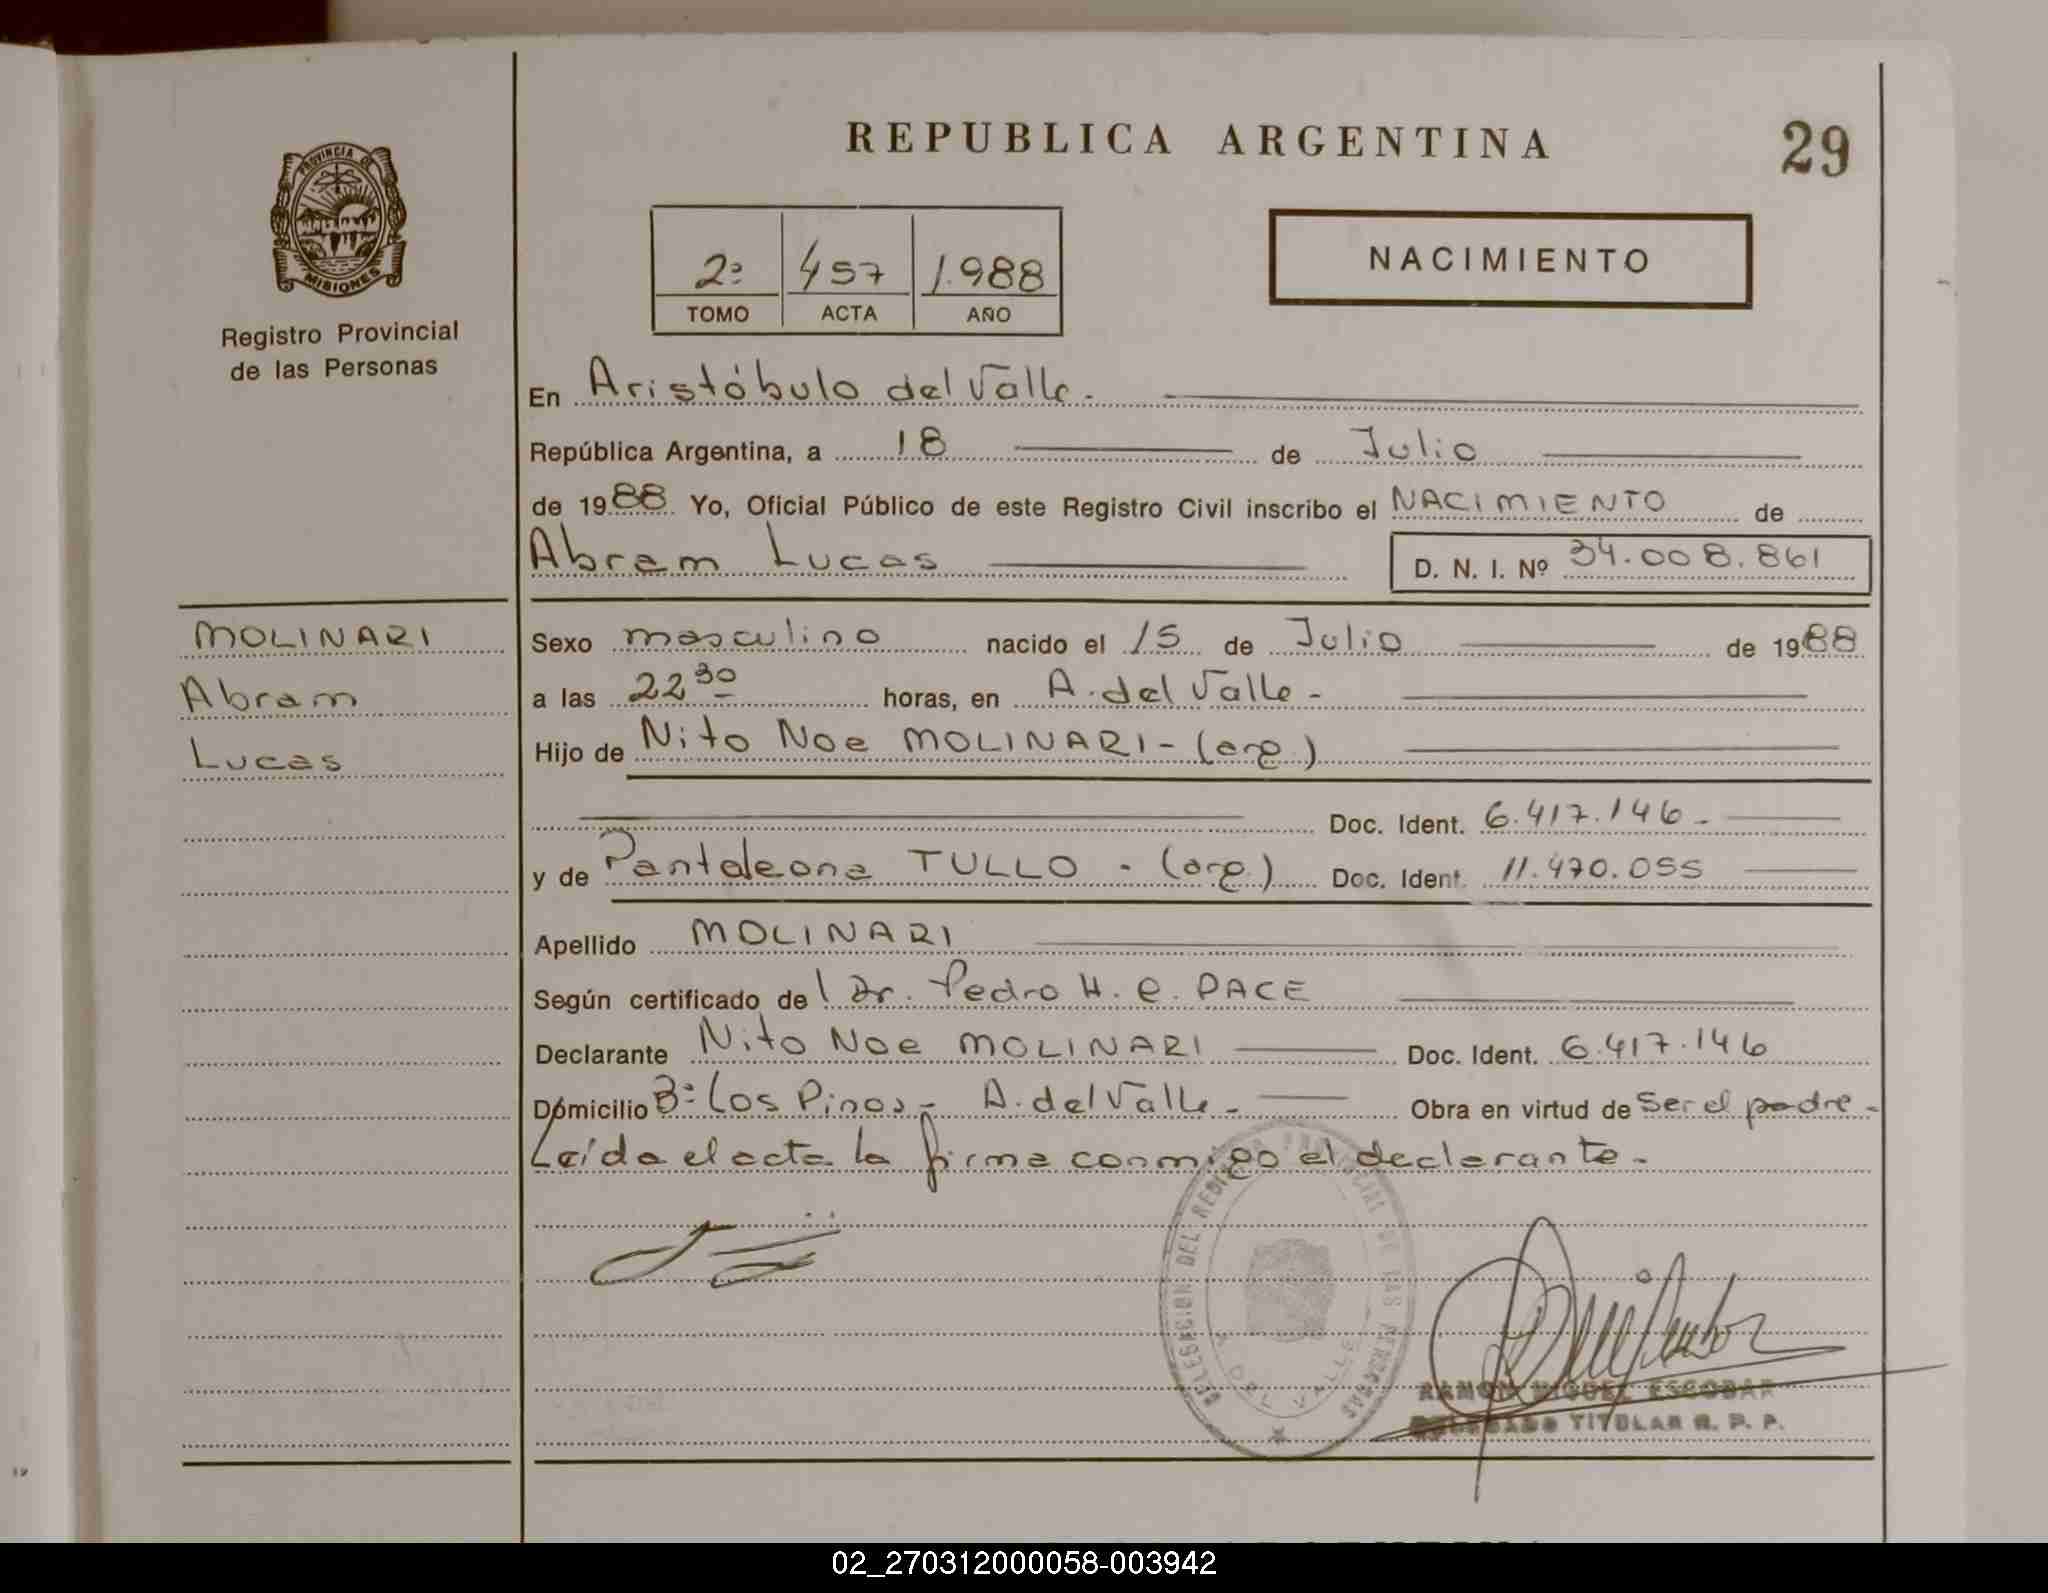 REPUBLICA ARGENTINA
29
PROVINCIA DE
MISIONES
Registro Provincial
de las Personas
2º 457 1.988
TOMO ACTA AÑO
NACIMIENTO
En Aristóbulo del Valle.
República Argentina, a 18 de Julio
de 1988 Yo, Oficial Público de este Registro Civil inscribo el NACIMIENTO de
Abram Lucas D. N. I. Nº 34.008.861
MOLINARI
Abram
Lucas
Sexo masculino nacido el 15 de Julio de 1988
a las 22 30 horas, en A. del Valle -
Hijo de Nito Noe MOLINARI - (arg.)
Doc. Ident. 6.417.146 -
y de Pantaleona TULLO - (arg.) Doc. Ident. 11.470.055
Apellido MOLINARI
Según certificado de l Dr. Pedro H. C. PACE
Declarante Nito Noe MOLINARI Doc. Ident. 6.417.146
Domicilio Bº Los Pinos - A. del Valle - Obra en virtud de Ser el padre -
Leída el acta la firma conmigo el declarante -
DELEGACION DEL REGISTRO PROVINCIAL DE LAS PERSONAS
A. DEL VALLE
RAMON MIGUEL ESCOBAR
DELEGADO TITULAR R. P. P.
02_270312000058-003942